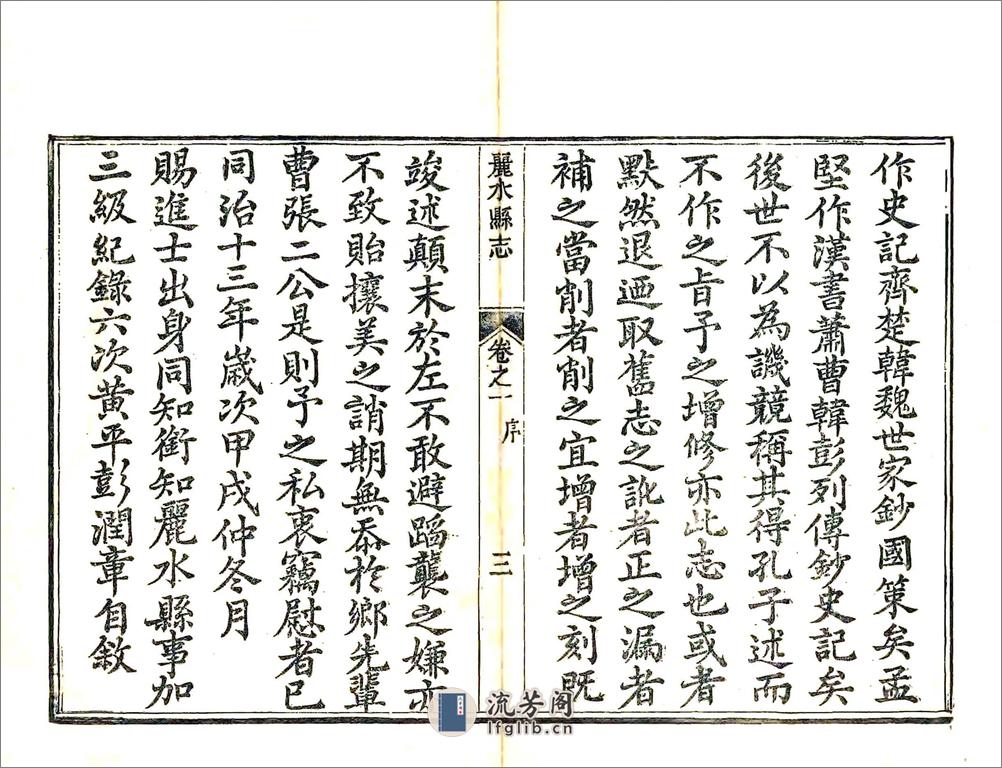 作史記齊楚韓魏世家鈔國策矣孟
堅作漢書蕭曹韓彭列傳鈔史記矣
後世不以為譏競稱其得孔子述而
不作之旨予之增修亦此志也或者
默然退迺取舊志之訛者正之漏者
補之當削者削之宜增者增之刻既
麗水縣志
卷之一
序
三
竣述顛末於左不敢避蹈襲之嫌亦
不致貽攘美之誚期無忝於鄉先輩
曹張二公是則予之私衷竊慰者已
同治十三年歲次甲戌仲冬月
賜進士出身同知銜知麗水縣事加
三級紀錄六次黃平彭潤章自敘
流芳阁
lfglib.cn